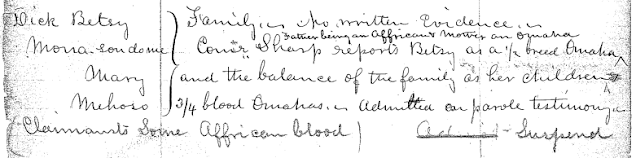 Dick Betsy } Family, is No written Evidence, is
Father being an Affrican & Mother an Omaha
Mona-sondame Comr Sharp reports Betsy as a ½ breed Omaha,
Mary and the balance of the family as her children
Mehoso 3/4 blood Omahas. is Admitted on parole testimony
(Claimants Some Affrican blood) Suspend